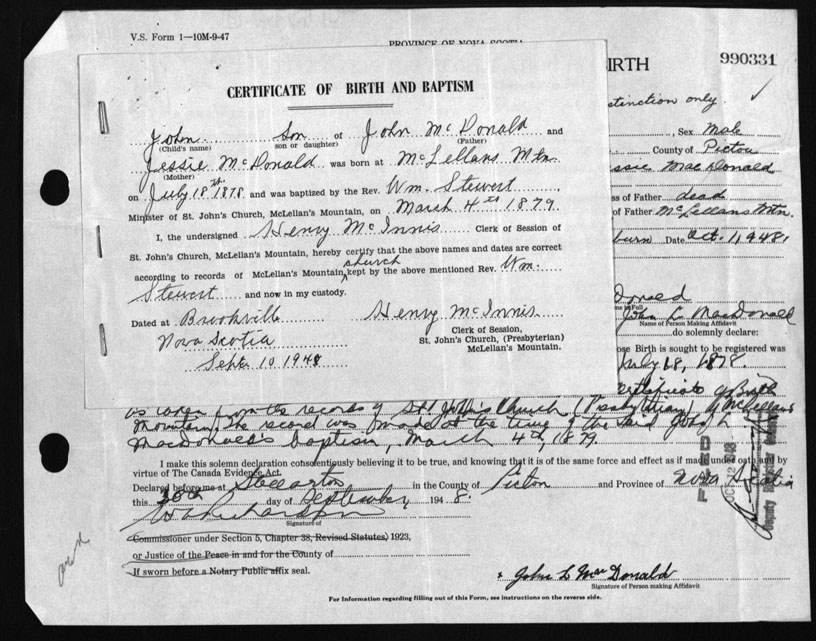 V.S. Form 1—10M-9-47
PROVINCE OF NOVA SCOTIA
BIRTH
990331
CERTIFICATE OF BIRTH AND BAPTISM
John Son of John McDonald and
(Child's name) son or daughter) (Father)
Jessie McDonald was born at McLellans Mtn.
(Mother)
on July 18th 1878 and was baptized by the Rev. Wm. Stewert,
Minister of St. John's Church, McLelian's Mountain, on March 4th 1879
I, the undersigned Henry McInnis Clerk of Session of
St. John's Church, McLellan's Mountain, hereby certify that the above names and dates are correct
church
according to records of McLellan's Mountain, kept by the above mentioned Rev. Wm.
Stewert and now in my custody.
Dated at Brookville Henry McInnis
Nova Scotia Clerk of Session,
St. John's Church, (Presbyterian)
McLellan's Mountain.
Sept 10 1948
stinction only.
, Sex Male
County of Pictou
ssie MacDonald
ss of Father dead
of Father McLellans Mtn.
burn Date Oct. 1, 1948.
Donald
John L. MacDonald
Name of Person Making Affidavit
do solemnly declare:
ose Birth is sought to be registered was
July 18, 1878.
ertificate of Birth
as taken from the records of St. John's Church (Presbyterian) of McLellans
Mountain. The record was made at the time of the said John L
MacDonald's baptism, March 4th, 1879
I make this solemn declaration conscientiously believing it to be true, and knowing that it is of the same force and effect as if made under oath and by
virtue of The Canada Evidence Act.
Declared before me at Stellarton in the County of Pictou and Province of Nova Scotia
this 28th day of September, 1948.
Signature of
Commissioner under Section 5, Chapter 38, Revised Statutes, 1923,
or Justice of the Peace in and for the County of
If sworn before a Notary Public affix seal.
John L MacDonald
Signature of Person making Affidavit
For Information regarding filling out of this Form, see instructions on the reverse side.
FILED